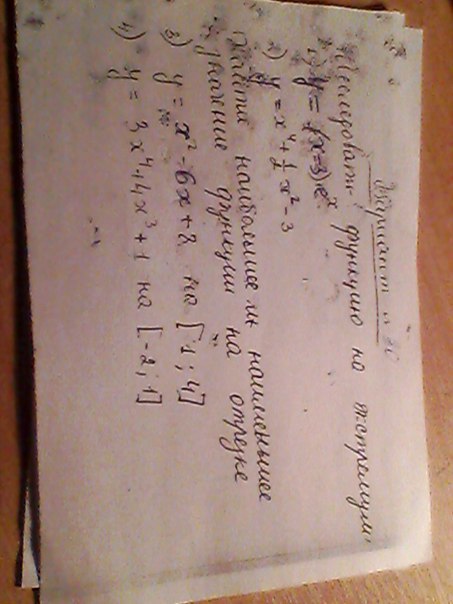 Вариант n
Исследовать функцию на экстремум
1) y = (x-3)e^x
2) y = x^4 + 1/2 x^2 - 3
Найти наибольшее и наименьшее
значение функции на отрезке
3) y = x^2 - 6x + 8 на [1; 4]
4) y = 3x^4 + 4x^3 + 1 на [-2; 1]